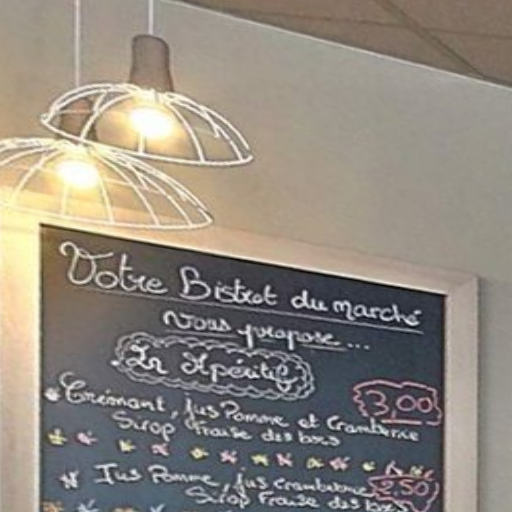 Votre Bistrot du marché
Vous propose ...
En Apéritif
Crémant, jus Pomme et Cramberrie 3,00
Sirop Fraise des bois
Jus Pomme, jus Cramberrie 2,50
Sirop Fraise des bois